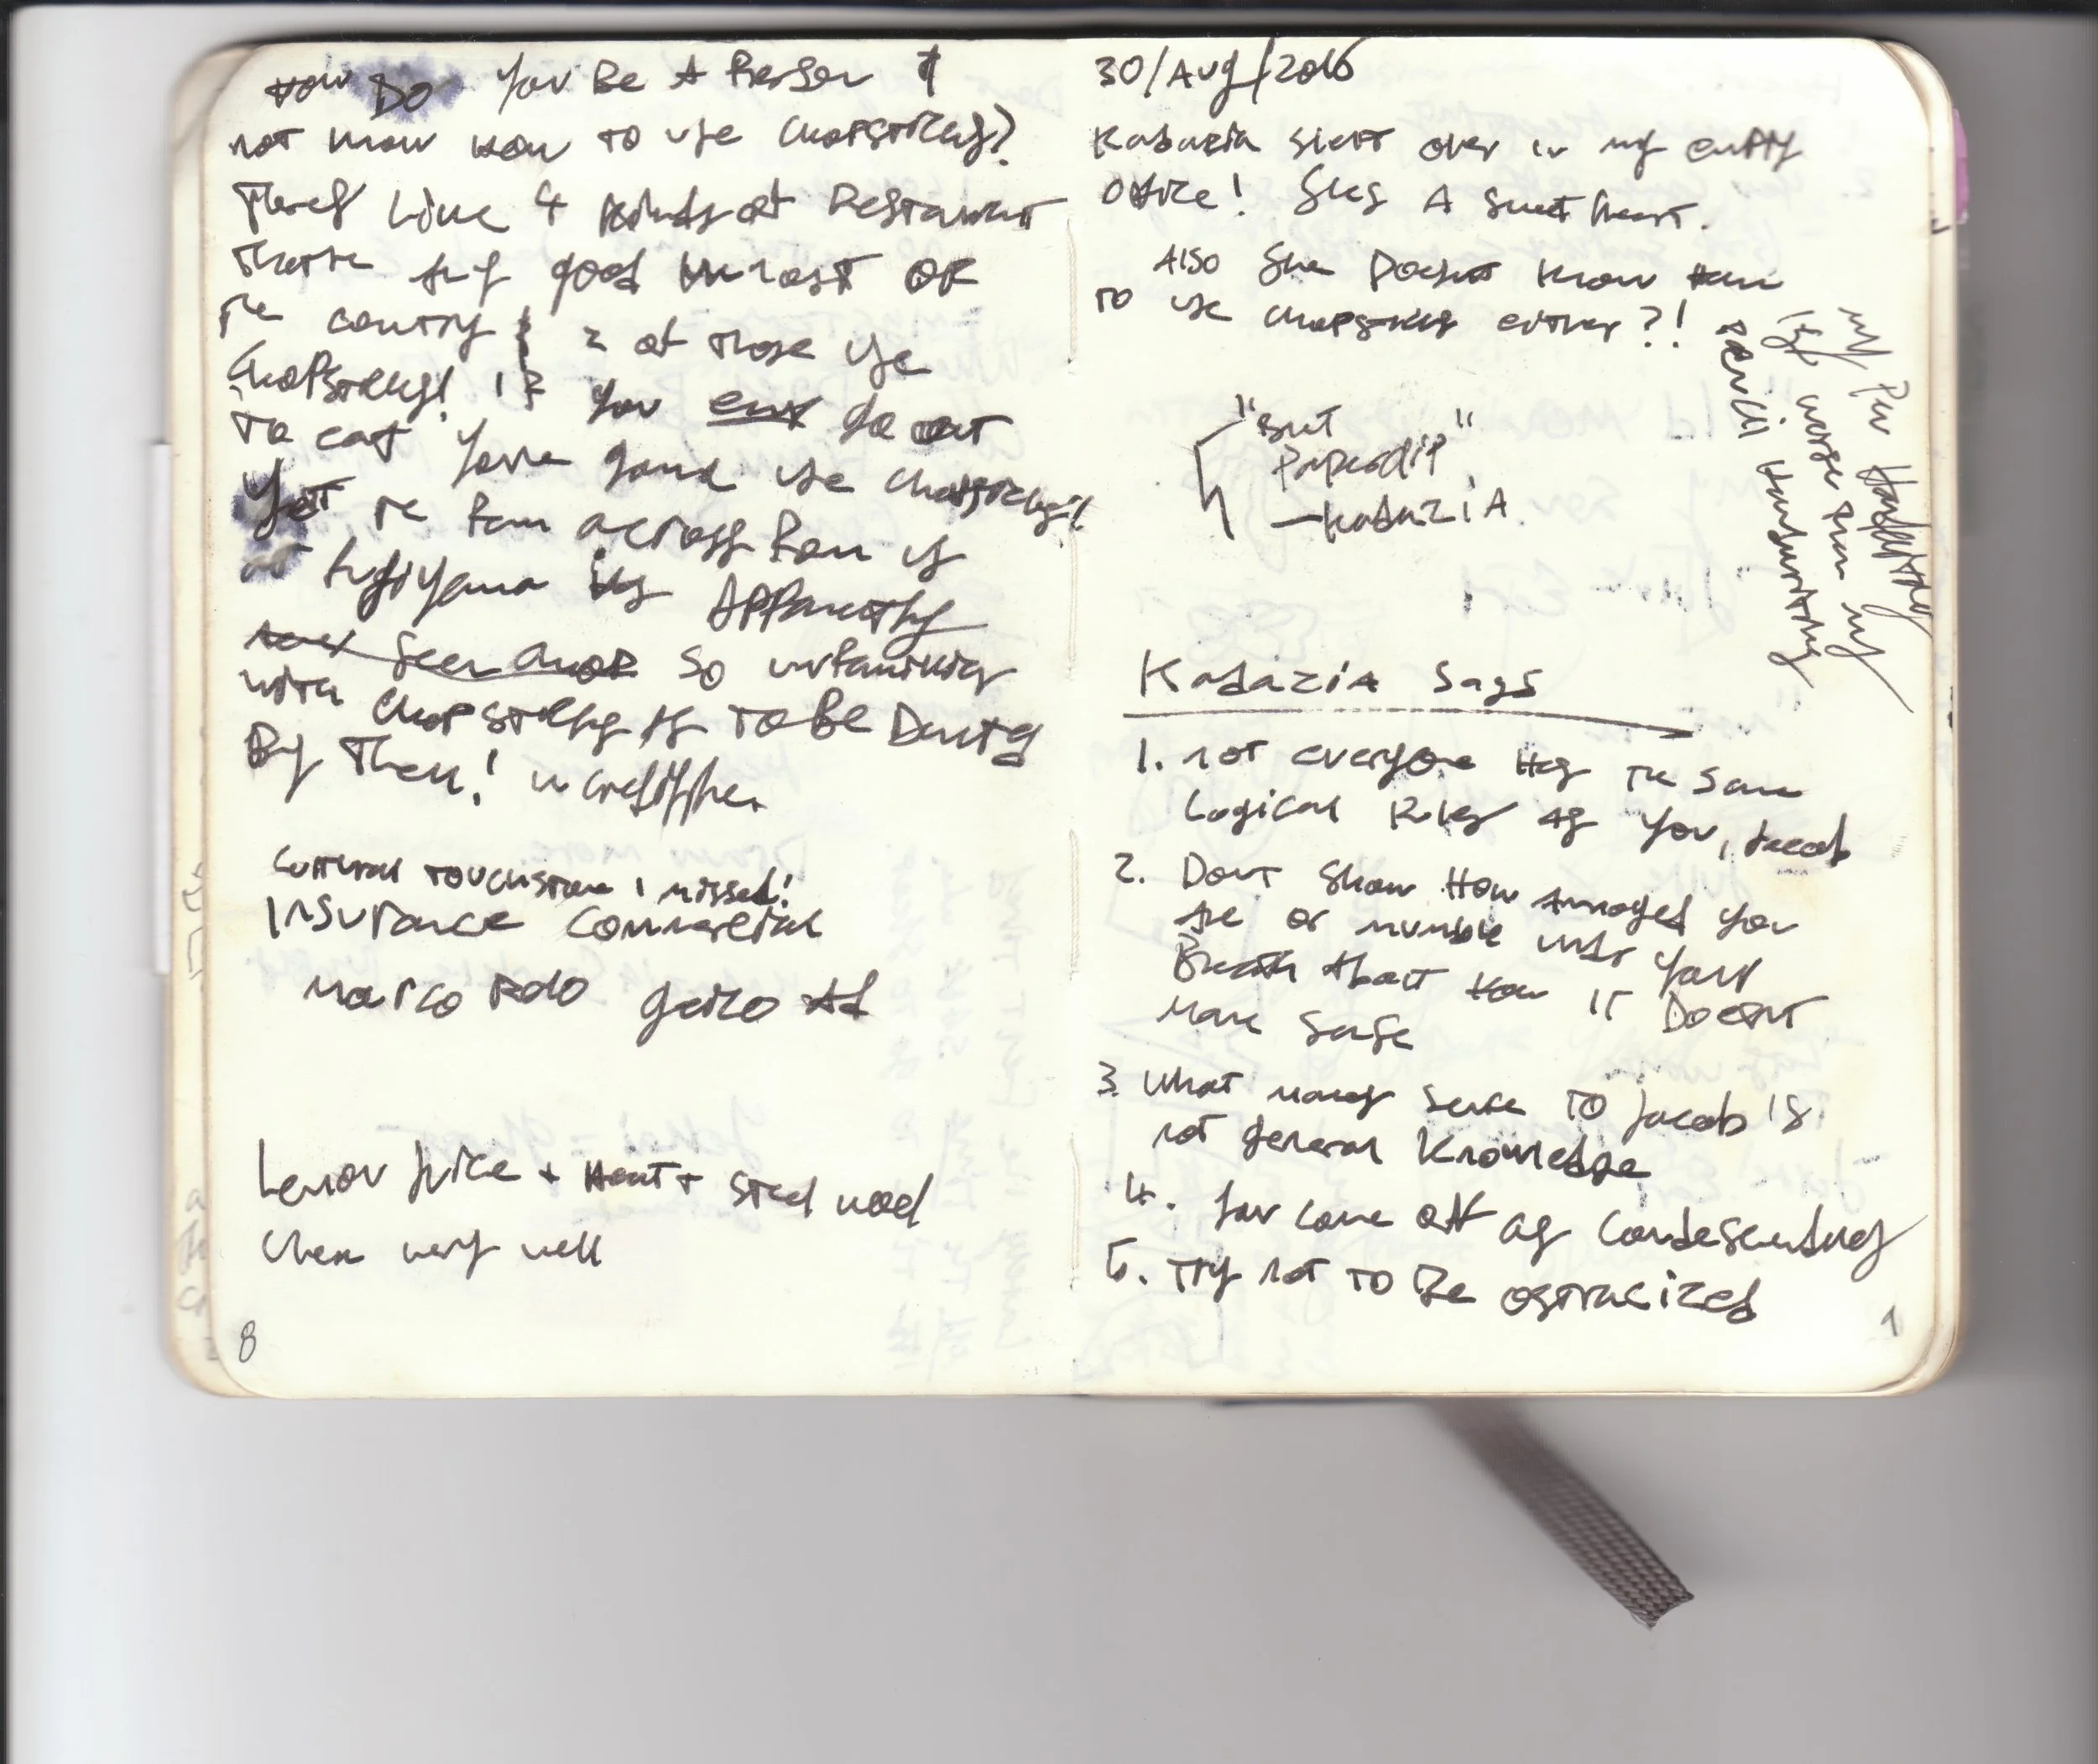 How Do You Be A Person &
not know how to use chopsticks?
There's Like 4 kinds of Restaurant
that's any good in most OF
the country & 2 of those use
Chopsticks! IF you go out
to eat You're gonna use chopsticks!
Yet the Fam across From us
at Fujiyama was Apparently
so unfamiliar
with chopsticks as TO BE Daunted
By Them!
Cultural Touchstone I missed!
Insurance Commercial
Marco Polo Geico Ad
Lemon Juice + Heat + Steel wool
clean very well
8
30/Aug/2016
Kadazia slept over in my empty
office! She's A sweetheart.
Also She Doesn't know How
to use chopsticks either?!
my Pen Handwriting
is worse than my
pencil Handwriting
"But
Paperclip"
—Kadazia
Kadazia Says
1. not everyone Has the same
Logical Rules as you, Jacob
2. Don't Show How Annoyed you
are or mumble under your
Breath About How it Doesn't
make sense
3. What makes sense to Jacob is
not general Knowledge
4. You come off as condescending
5. Try not to Be ostracized